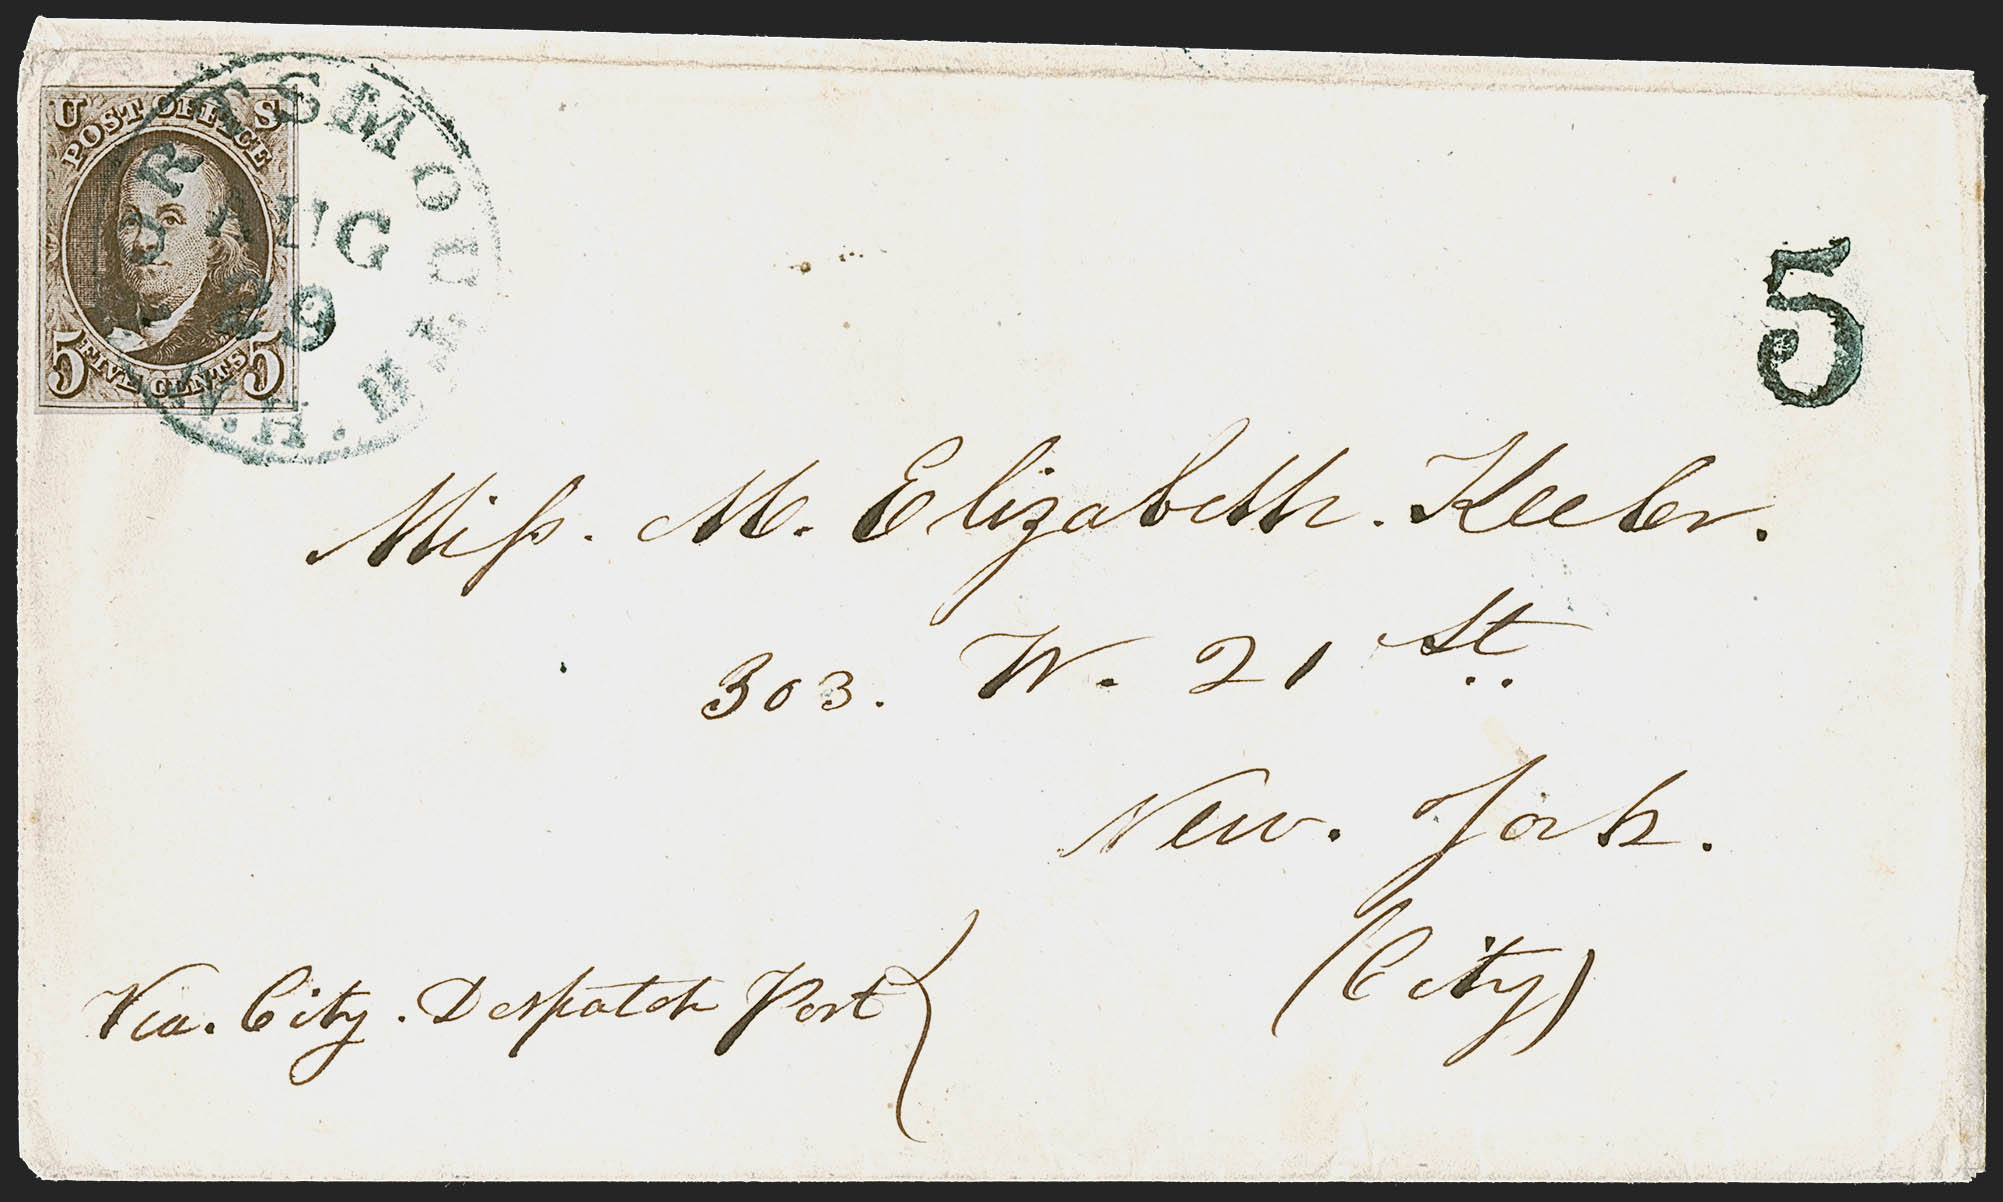 U S
POST OFFICE
5 FIVE CENTS 5
PORTSMOUTH. N.H.
AUG
29
5
Miss. M. Elizabeth. Keeler.
303. W. 21 St.
New. York.
(City)
Via. City. Despatch Post